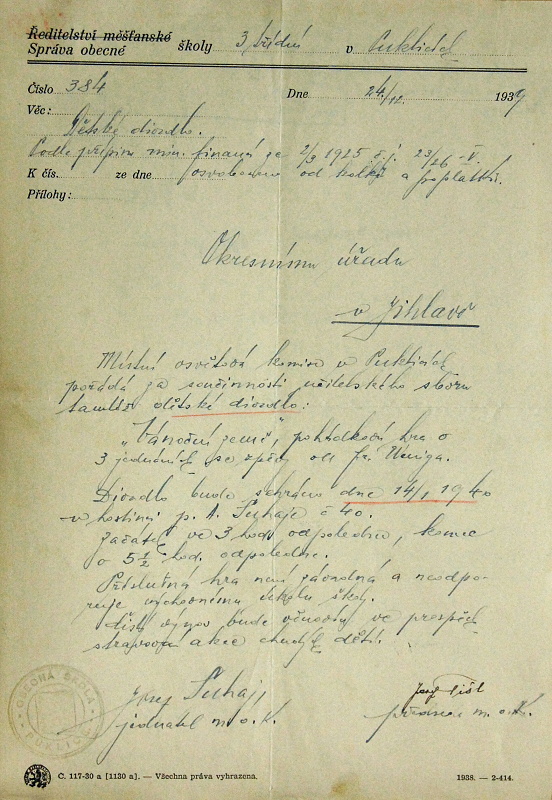 Ředitelství měšťanské
Správa obecné školy 3 třídní v Puklicích
Číslo 384 Dne 24./12. 1939
Věc:
Dětské divadlo.
Podle přípisu min. financí ze 2/3 1925 č.j. 23/26 -V.
K čís. ze dne osvobozeno od kolků a poplatků.
Přílohy:
Okresnímu úřadu
v Jihlavě
Místní osvětová komise v Puklicích
pořádá za součinnosti učitelského sboru
tamtéž dětské divadlo:
„Vánoční země", pohádková hra o
3 jednáních se zpěvy od
Divadlo bude sehráno dne 14/1 1940
v hostinci p. A. Suhaje č 40.
Začátek ve 3 hod. odpoledne, konec
o 5 1/2 hod. odpoledne.
Příslušná hra není závadná a neodpo-
ruje výchovnému úkolu školy.
Čistý výnos bude věnován ve prospěch
stravovací akce chudých dětí.
Josef Suhaj
jednatel m. o. k.
Josef Tišl
předseda m. o. k.
OBECNÁ ŠKOLA
Č. 117-30 a [1130 a]. — Všechna práva vyhrazena.
1938. — 2-414.